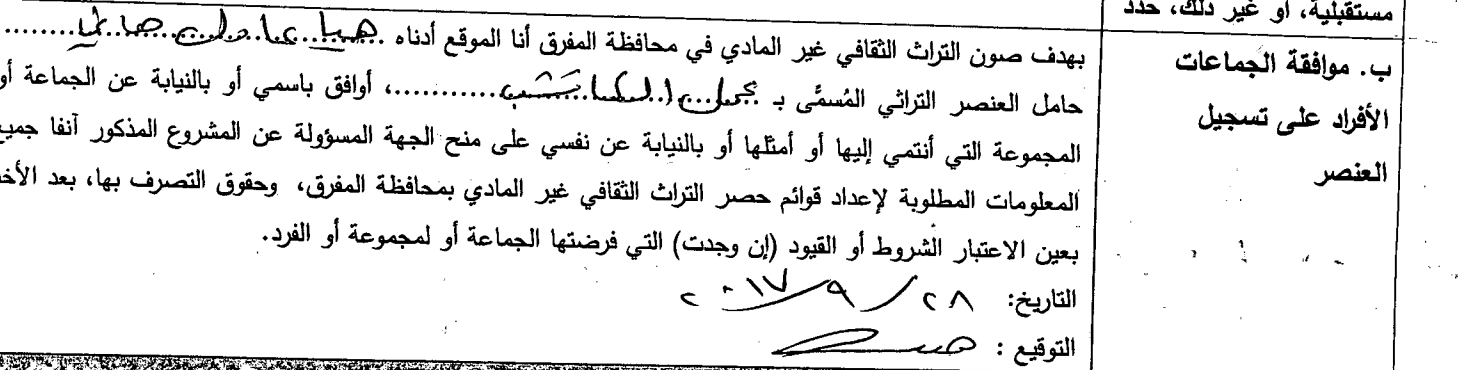 مستقبلية، أو غير ذلك، حدد
ب. موافقة الجماعات
الأفراد على تسجيل
العنصر
بهدف صون التراث الثقافي غير المادي في محافظة المفرق أنا الموقع أدناه
حامل العنصر التراثي المُسمَّى بـ ............، أوافق باسمي أو بالنيابة عن الجماعة أو
المجموعة التي أنتمي إليها أو أمثلها أو بالنيابة عن نفسي على منح الجهة المسؤولة عن المشروع المذكور آنفا جميع
المعلومات المطلوبة لإعداد قوائم حصر التراث الثقافي غير المادي بمحافظة المفرق، وحقوق التصرف بها، بعد الأخ
بعين الاعتبار الشروط أو القيود (إن وجدت) التي فرضتها الجماعة أو لمجموعة أو الفرد.
التاريخ: ٢٨/٩/٢٠١٧
التوقيع :